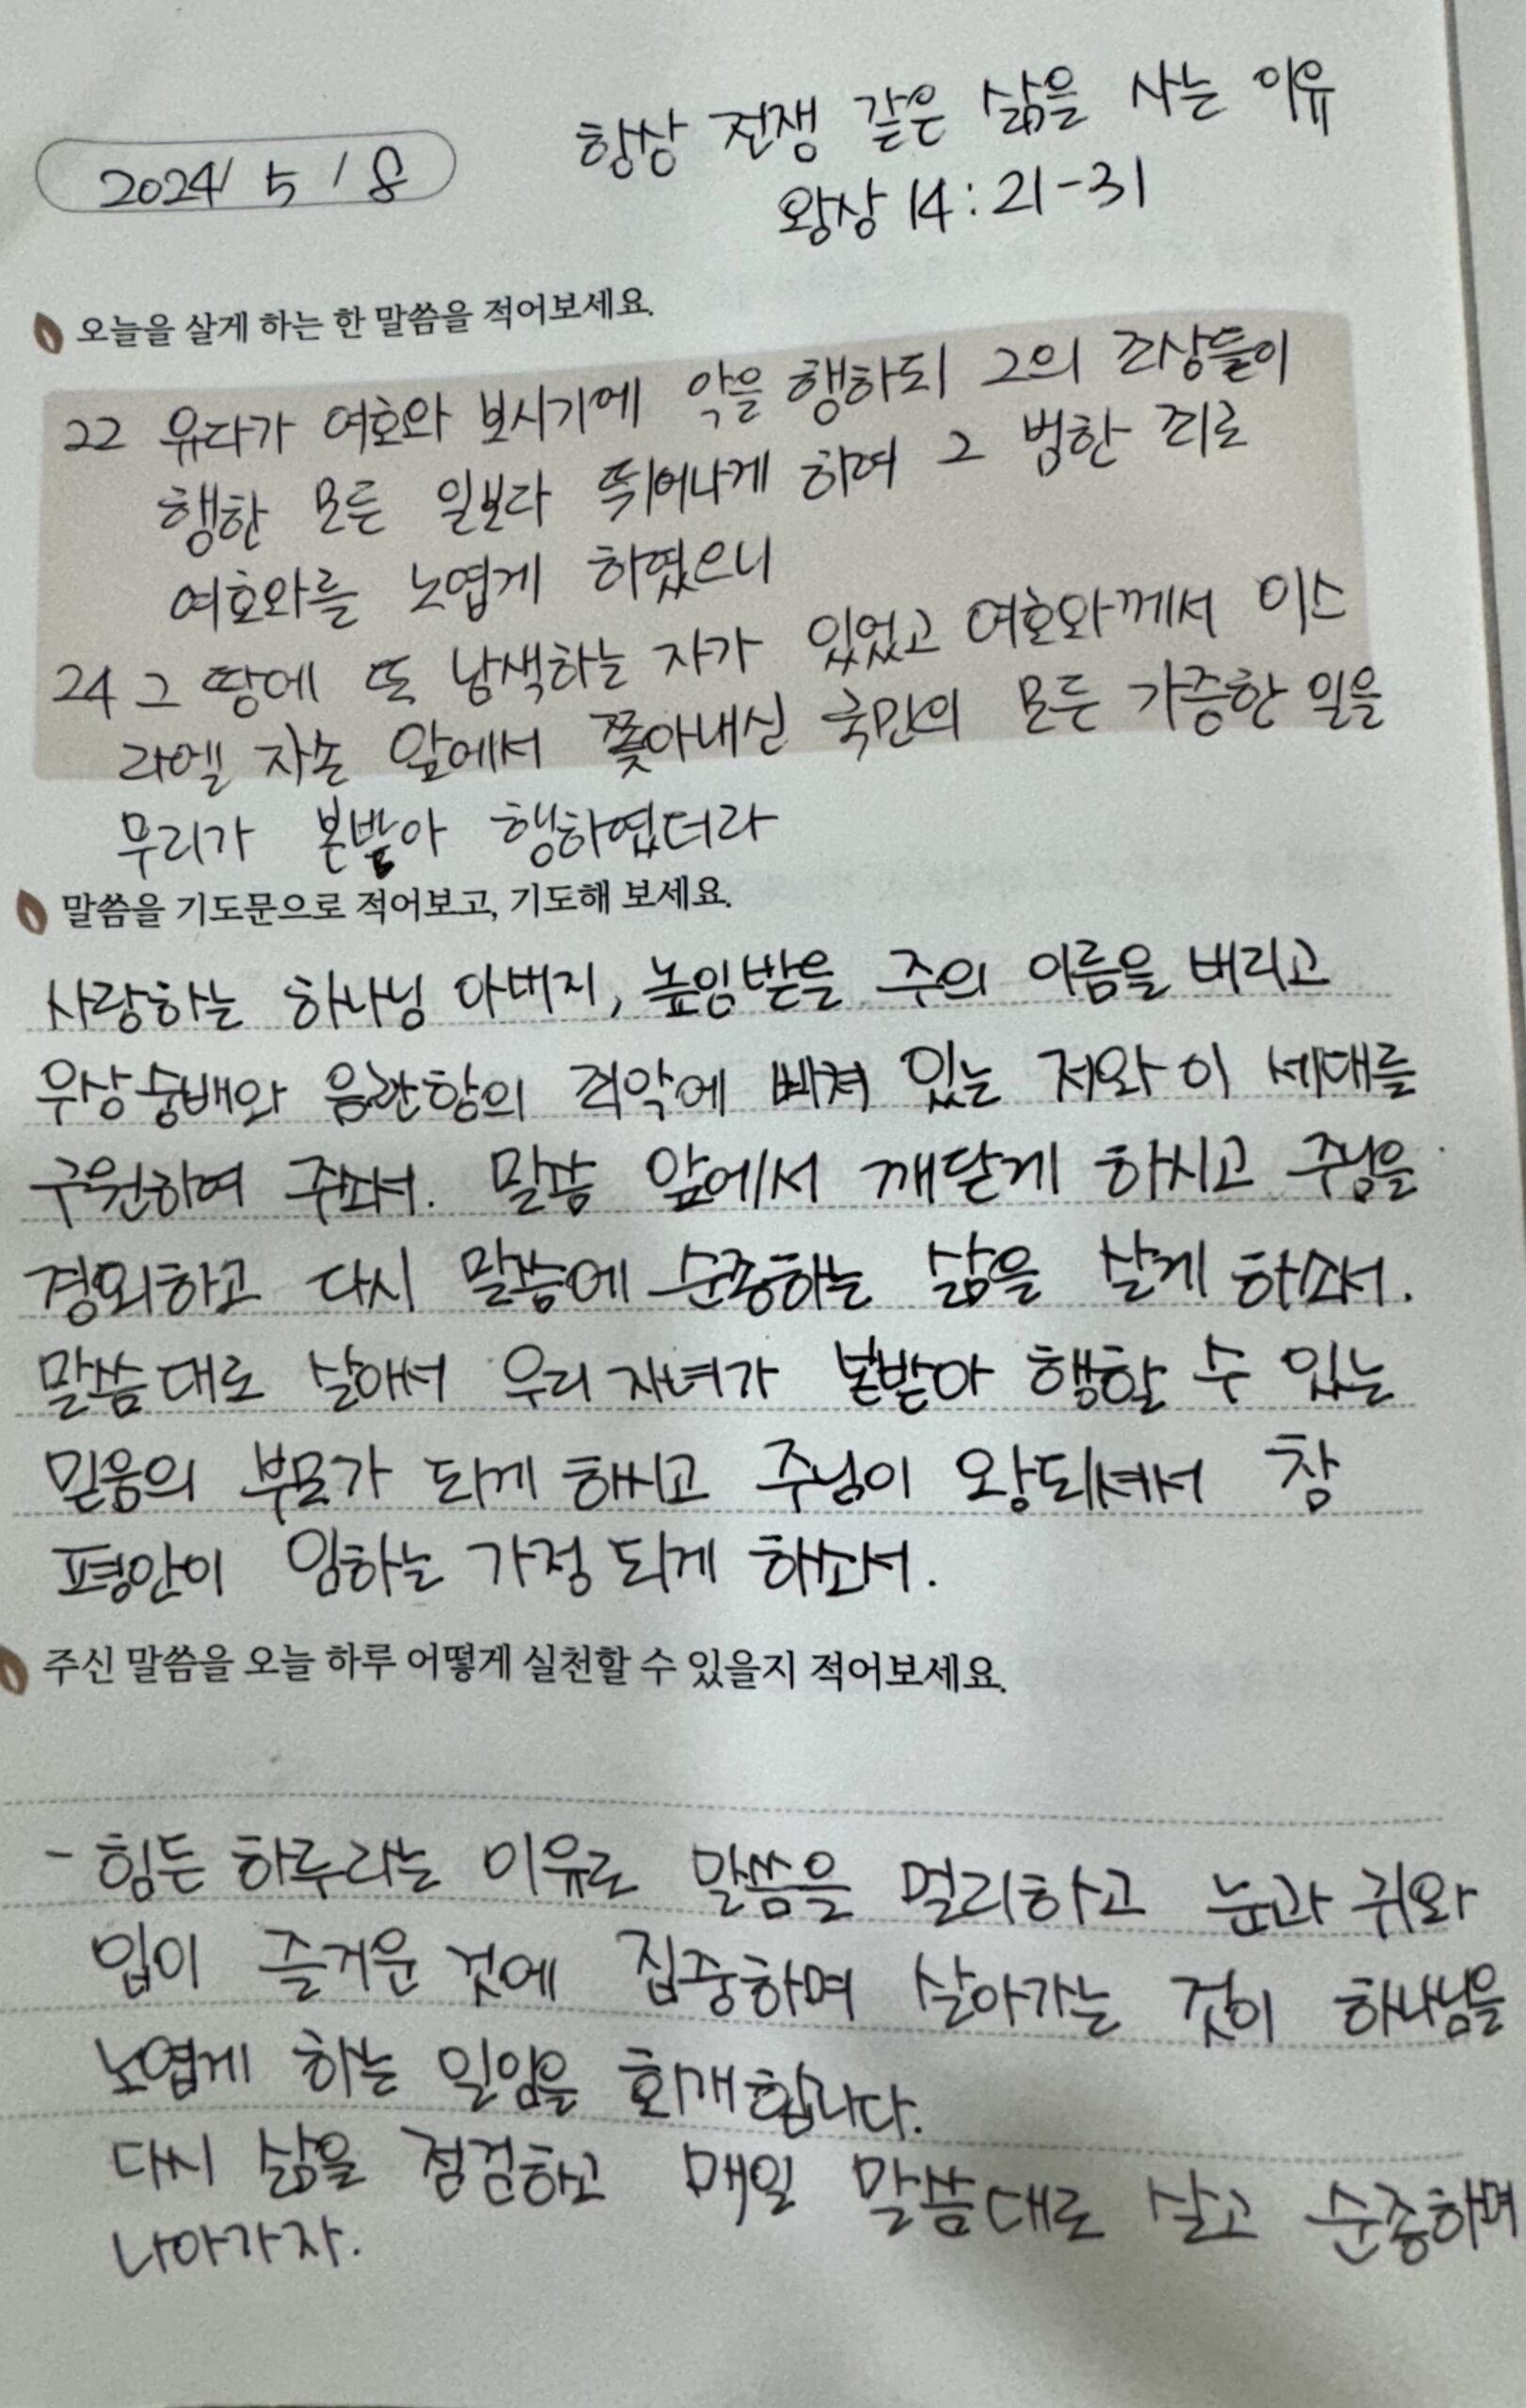 2024 / 5 / 8
항상 전쟁 같은 삶을 사는 이유
왕상 14:21-31
오늘을 살게 하는 한 말씀을 적어보세요.
22 유다가 여호와 보시기에 악을 행하되 그의 조상들이
행한 모든 일보다 뛰어나게 하여 그 범한 죄로
여호와를 노엽게 하였으니
24 그 땅에 또 남색하는 자가 있었고 여호와께서 이스
라엘 자손 앞에서 쫓아내신 국민의 모든 가증한 일을
무리가 본받아 행하였더라
말씀을 기도문으로 적어보고, 기도해 보세요.
사랑하는 하나님 아버지, 높임받을 주의 이름을 버리고
우상숭배와 음란함의 죄악에 빠져 있는 저와 이 세대를
구원하여 주소서. 말씀 앞에서 깨닫게 하시고 주님을
경외하고 다시 말씀에 순종하는 삶을 살게 하소서.
말씀대로 살아서 우리 자녀가 본받아 행할 수 있는
믿음의 부모가 되게 하시고 주님이 왕되셔서 참
평안이 임하는 가정 되게 하소서.
주신 말씀을 오늘 하루 어떻게 실천할 수 있을지 적어보세요.
- 힘든 하루라는 이유로 말씀을 멀리하고 눈과 귀와
입이 즐거운 것에 집중하며 살아가는 것이 하나님을
노엽게 하는 일임을 회개합니다.
다시 삶을 점검하고 매일 말씀대로 살고 순종하며
나아가자.